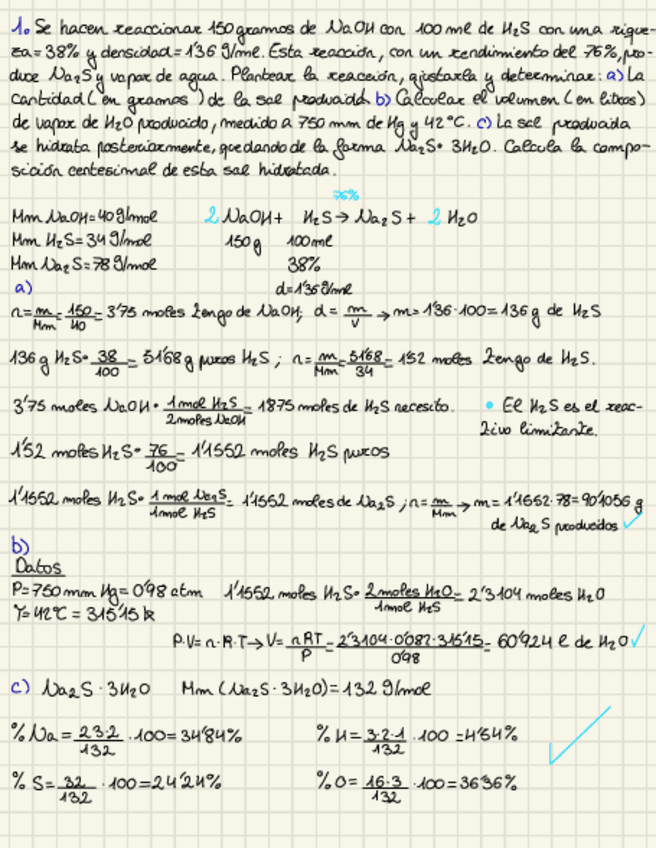 1. Se hacen reaccionar 150 gramos de NaOH con 100 ml de H₂S con una rique-
za = 38% y densidad = 1'36 g/ml. Esta reacción, con un rendimiento del 76%, pro-
duce Na₂S y vapor de agua. Plantear la reacción, ajustarla y determinar: a) La
cantidad (en gramos) de la sal producida b) Calcular el volumen (en litros)
de vapor de H₂O producido, medido a 750 mm de Hg y 42°C. c) La sal producida
se hidrata posteriormente, quedando de la forma Na₂S· 3H₂O. Calcula la compo-
sición centesimal de esta sal hidratada.
76%
Mm NaOH = 40 g/mol 2 NaOH + H₂S → Na₂S + 2 H₂O
Mm H₂S = 34 g/mol 150 g 100 ml
Mm Na₂S = 78 g/mol 38%
a) d = 1'36 g/ml
n = m/Mm = 150/40 = 3'75 moles tengo de NaOH; d = m/V → m = 1'36·100 = 136 g de H₂S
136 g H₂S · 38/100 = 51'68 g puros H₂S ; n = m/Mm = 51'68/34 = 1'52 moles tengo de H₂S.
3'75 moles NaOH · 1 mol H₂S/2 moles NaOH = 1'875 moles de H₂S necesito. • El H₂S es el reac-
tivo limitante.
1'52 moles H₂S · 76/100 = 1'1552 moles H₂S puros
1'1552 moles H₂S · 1 mol Na₂S/1 mol H₂S = 1'1552 moles de Na₂S ; n = m/Mm → m = 1'1552·78 = 90'1056 g
de Na₂S producidos ✓
b)
Datos
P = 750 mm Hg = 0'98 atm 1'1552 moles H₂S · 2 moles H₂O/1 mol H₂S = 2'3104 moles H₂O
T = 42°C = 315'15 k
P·V = n·R·T → V = nRT/P = 2'3104·0'082·315'15/0'98 = 60'924 l de H₂O ✓
c) Na₂S · 3H₂O Mm (Na₂S·3H₂O) = 132 g/mol
% Na = 23·2/132 · 100 = 34'84% % H = 3·2·1/132 · 100 = 4'54%
% S = 32/132 · 100 = 24'24% % O = 16·3/132 · 100 = 36'36%